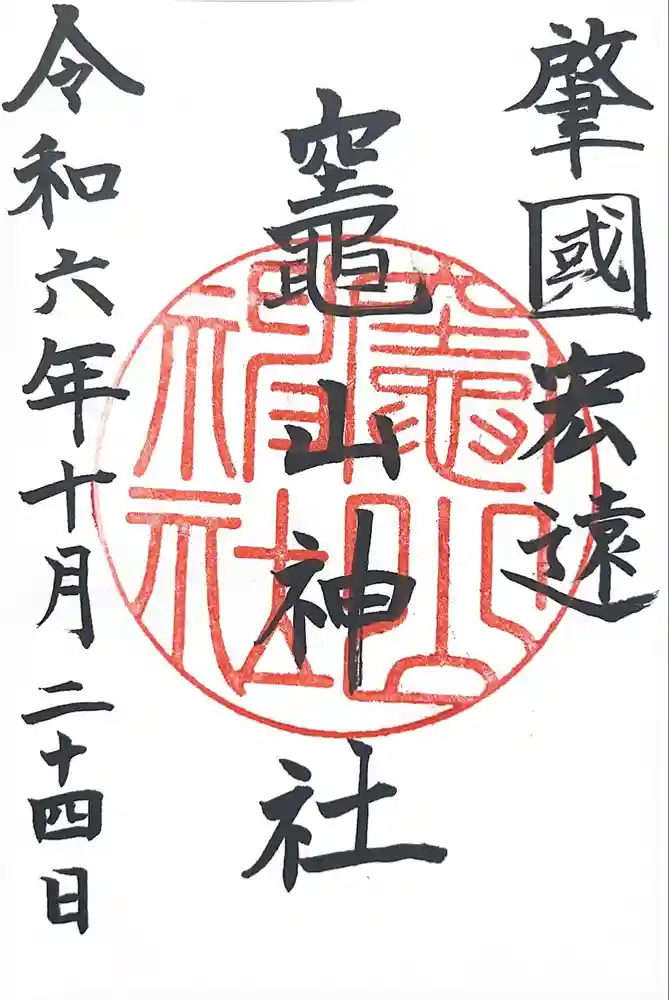 肇國宏遠
竈山神社
竈山神社
令和六年十月二十四日